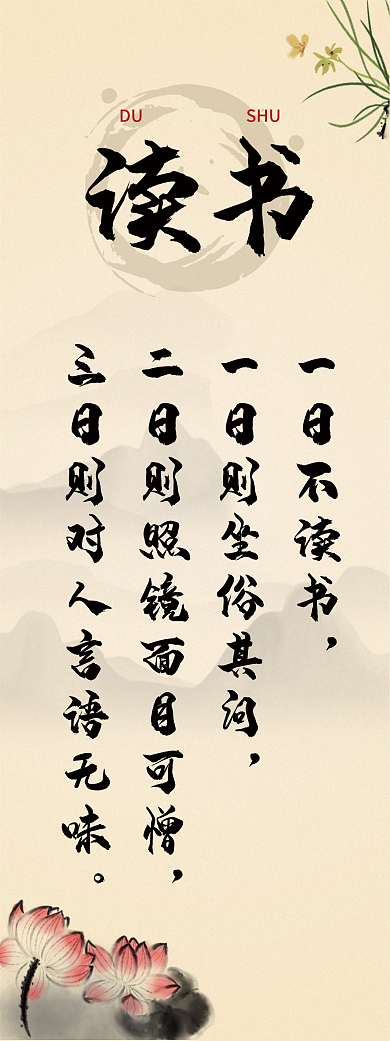 DU SHU
读书
一日不读书，
一日则尘俗其间，
二日则照镜面目可憎，
三日则对人言语无味。